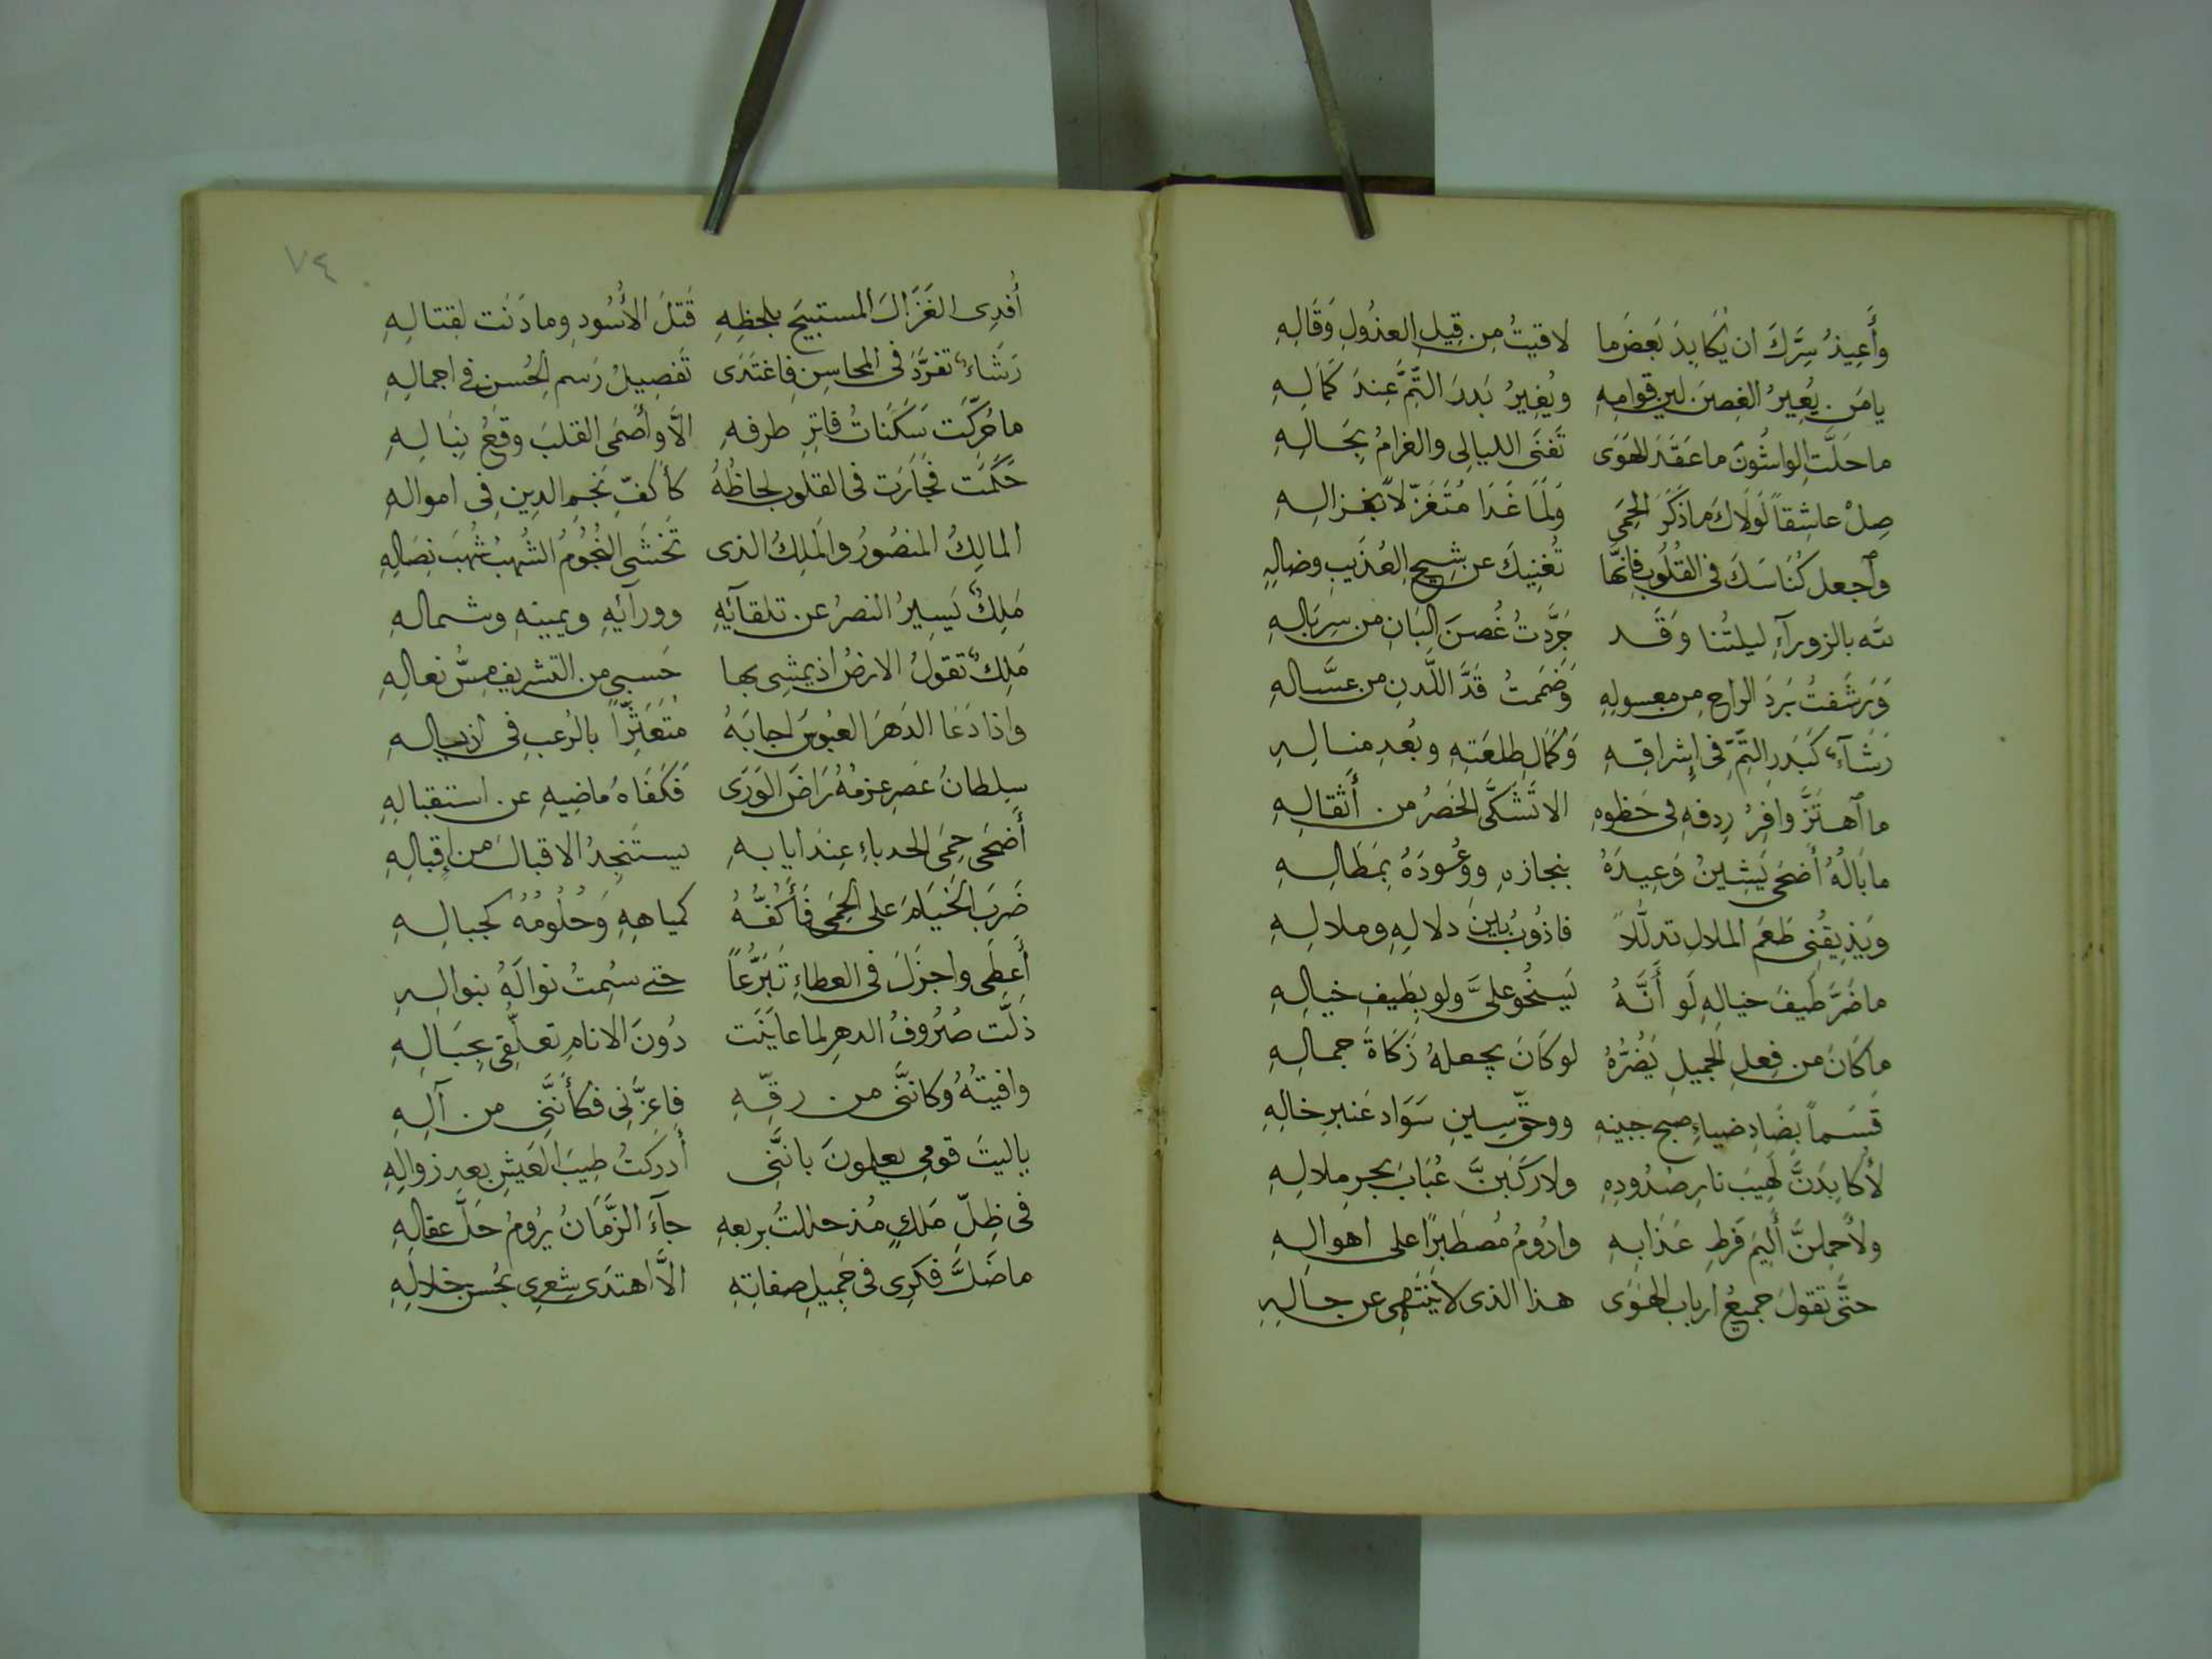 وَأُعِيذُ سِرَّكَ ان يُكَابِدَ بَعضَ ما لاقيتُ مِن قِيلِ العذُولِ وَقَالِهِ
يا مَن يُعِيرُ الغِصنَ لين قوامِهِ ويُغِيرُ بَدرَ التِّمَّ عِندَ كَمَالِهِ
ما حَلَّتِ الواشُونَ ما عَقَدَ الهَوَى تَفنَى الليالِى والغرامُ بِحَالِهِ
صِلْ عاشِقاً لَولَاكَ ما ذَكَرَ الحِمَى وَلَمَا غَدَا مُتَغَزِّلاً بغزالِهِ
وٱجعل كُنَاسَكَ فى القُلُوبِ فإنَّها تُغنِيكَ عن شِيحِ العُذَيبِ وضالِهِ
لله بالزورآءِ ليلتُنا وَقَد جَرَّدتُ غُصنَ البَانِ من سِربَالِهِ
وَرَشَفتُ بَردَ الراحِ مِن معسولِهِ وَضَمَمتُ قَدَّ اللَّدنِ من عسَّالِهِ
رَشَآءٌ كَبَدرِ التِّمِّ فى إشراقِهِ وَكَمَالِ طلعَتِهِ وبُعدِ مِنالِهِ
ما ٱهتَزَّ وافِرُ رِدفهِ فى خَطوِهِ الا تَشَكَّى الخَصرُ من أَثقالِهِ
ما بَالُهُ أَضحَى يَشِينُ وَعِيدَهُ بنجازهِ ووُعُودَهُ بِمَطَالِهِ
ويَذِيقُنِى طَعمَ الملالِ تدلُّلاً فاذُوبُ بين دلالِهِ وملالِهِ
ما ضَرَّ طَيفَ خيالِهِ لَو أَنَّهُ يَسخُو علىَّ ولو بِطَيفِ خيالِهِ
ما كَانَ من فِعلِ الجميلِ يَضُرُّهُ لو كَانَ يجعلهُ زَكَاةَ جمالِهِ
قَسَماً بِضَادِ ضياءِ صبحِ جبينِهِ ووحقّ سِينِ سَوَاد عَنبرِ خالِهِ
لأُكابِدَنَّ لَهِيبَ نارِ صُدُودِهِ ولاركَبَنَّ عُبَابَ بحرِ ملالِهِ
ولأَحمِلنَّ أَلِيمَ فَرطِ عَذابِهِ وادُومُ مُصطَبِرًا على اهوالِهِ
حتَّى تقولَ جميعُ ارباب الهَوَى هذا الذى لا يَنتَهِى عن حالِهِ
٧٤
أَفدِى الغَزَالَ المستبيحَ بلحظِهِ قَتلَ الأُسُودِ وما دَنَت لقتالِهِ
رَشَاءٌ تفرَّدَ فى المحاسِنِ فاغتَدَى تَفصِيلُ رَسمِ الحُسنِ فى اجمالِهِ
ما حُرِّكَت سَكَنَاتُ فاتِرِ طرفهِ الَّا وأَصمَى القلبَ وقعُ نِبَالِهِ
حَكَمَت فجَارَت فى القلوبِ لحاظُهُ كأَكُفّ نجمِ الدينِ فِى اموالهِ
المالِكُ المنصُورُ والمَلِكُ الذى تَخشَى النُجُومُ الشُهبُ شُهبَ نِصَالِهِ
مَلِكٌ يَسِيرُ النصرُ عن تلقآئِهِ وورآئِهِ ويمينِهِ وشمالهِ
مَلِكٌ تقولُ الارضُ اذ يمشِى بها حَسبِى من التشريفِ مِسُّ نعالِهِ
واذا دَعَا الدَهرَ العبُوسَ اجابَهُ مُتَعَثِّرًا بالرُعبِ فى اذيالِهِ
سلطانُ عَصرٍ عزمُهُ رَاضَ الوَرَى فَكَفَاهُ ماضِيهِ عن استقبالِهِ
أَضحَى حِمَى الحدباءِ عِندَ ايابهِ يستَنجِدُ الاقبالَ من إقبالِهِ
ضَرَبَ الخيَامَ على الحِمَى فَأَكُفُّهُ كمياهِهِ وَحُلُومُهُ كجبالِهِ
أَعطَى واجزَلَ فى العطاءِ تَبَرُّعاً حتى سئِمتُ نوالَهُ بنوالِهِ
ذلَّت صُرُوفُ الدهرِ لما عايَنَت دُونَ الانامِ تعلُّقِى بِحِبَالِهِ
وافيتُهُ وكانَّنى من رقّهِ فاعزَّنِى فكأَنَّنِى من آلِهِ
يا ليتَ قومِى يعلمونَ بانَّنِى أدركتُ طِيبَ العَيشِ بعد زوالِهِ
فى ظِلِّ مَلكٍ مُذ حللتُ بربعهِ جآءَ الزَّمَانُ يرُومُ حَلَّ عقالِهِ
ما ضَلَّ فكرِى فى جَمِيلِ صفاتِهِ الَّا اهتدَى شِعرِى بحُسنِ خلالِهِ